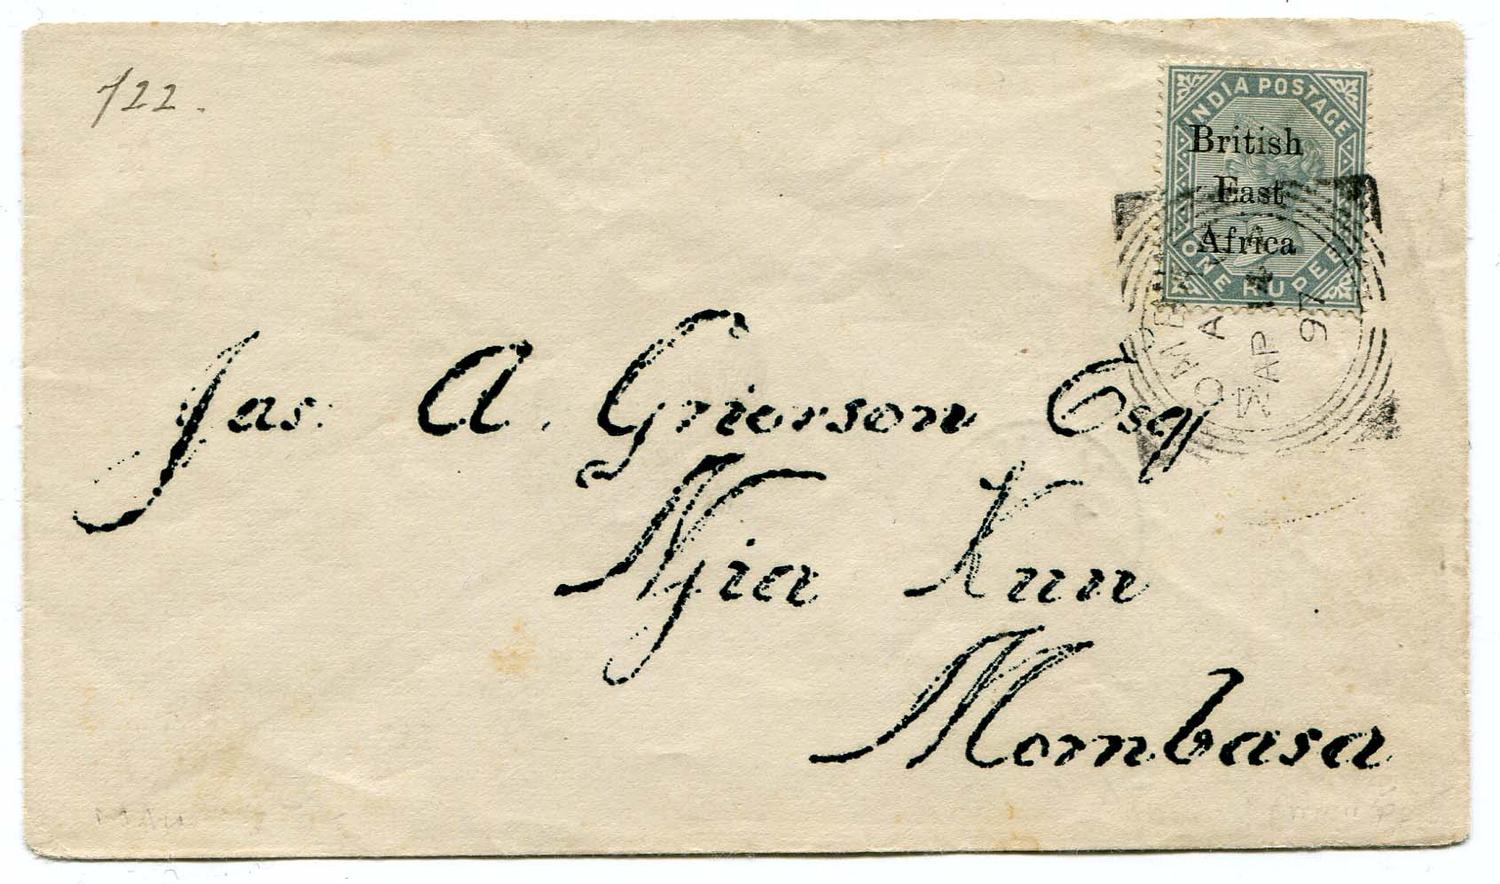 722.
INDIA POSTAGE
British
East
Africa
ONE RUPEE
MOMBASA
A
AP 14
97
Jas. A. Grierson Esq
Njia Kuu
Mombasa